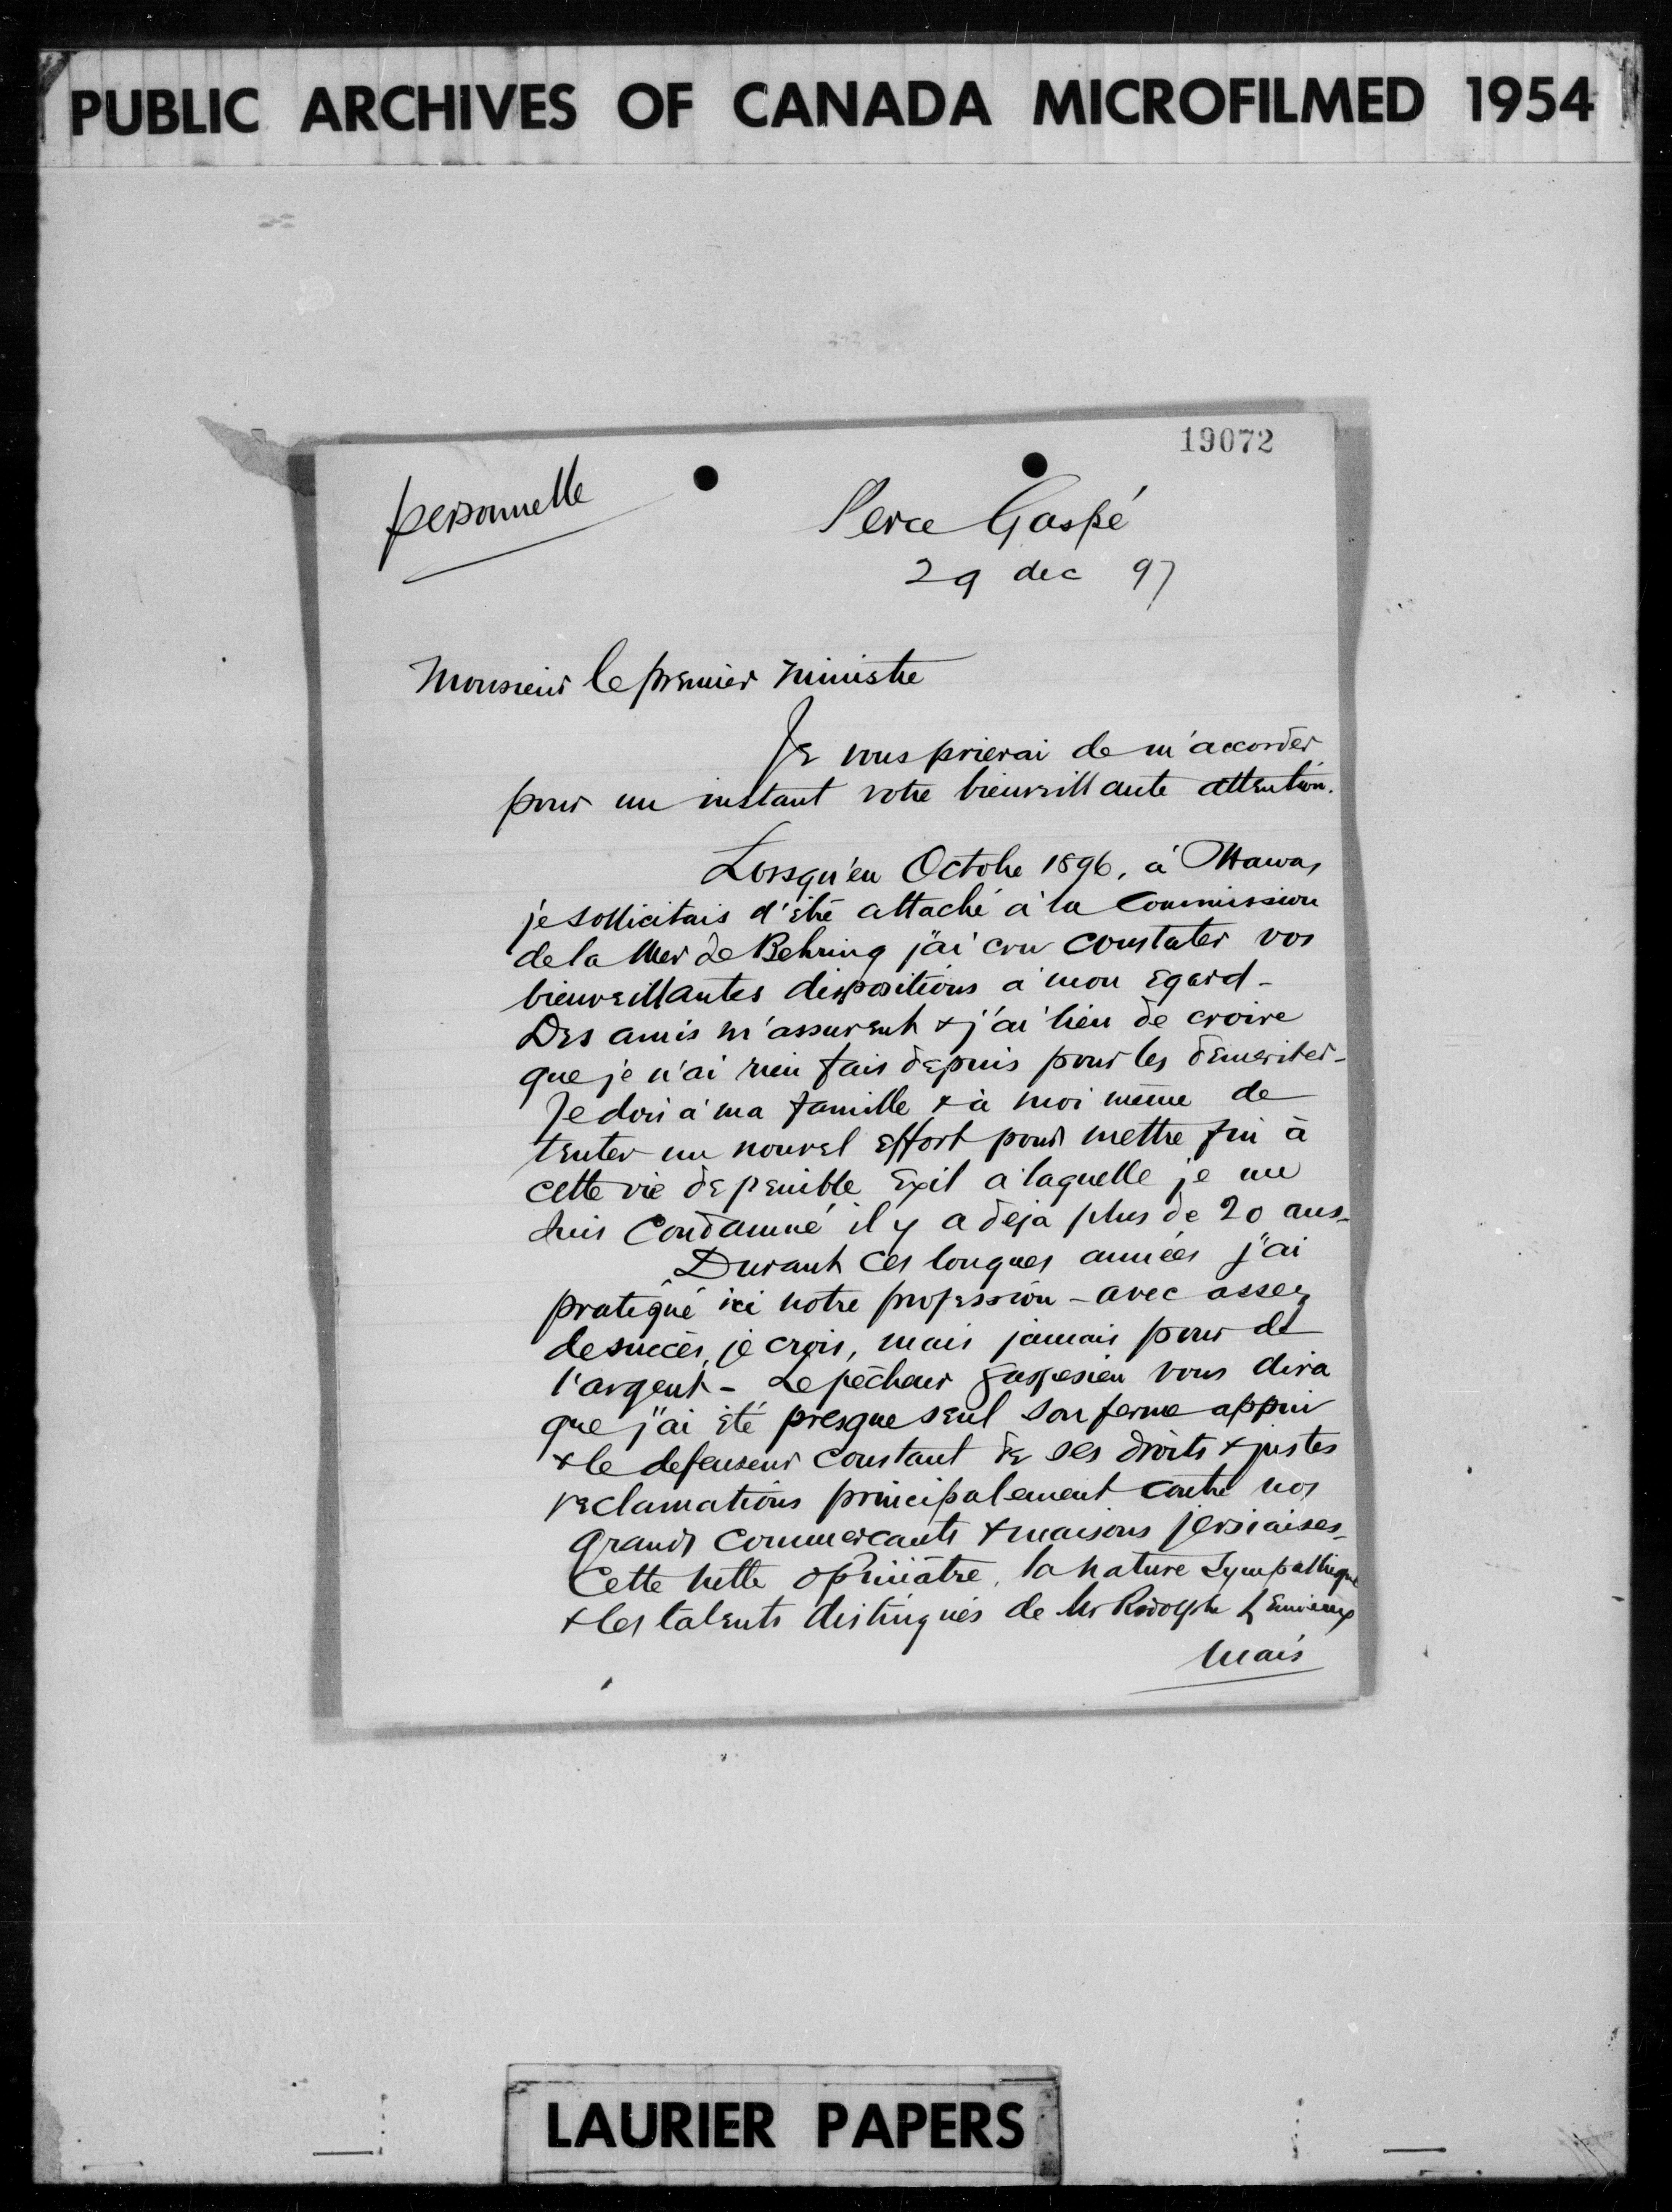 PUBLIC ARCHIVES OF CANADA MICROFILMED 1954
19072
personnelle
Perce Gaspé
29 dec 97
Monsieur le premier ministre
Je vous prierai de m'accorder
pour un instant votre bienveillante attention.
Lorsqu'en Octobre 1896, à Ottawa,
je sollicitais d'être attaché à la Commission
de la Mer de Behring j'ai cru constater vos
bienveillantes dispositions à mon egard -
Des amis m'assurent & j'ai lieu de croire
que je n'ai rien fais depuis pour les démeriter -
Je dois à ma famille & à moi même de
tenter un nouvel effort pour mettre fin à
cette vie de penible exil à laquelle je me
suis Condamné il y a deja plus de 20 ans -
Durant ces longues années j'ai
pratiqué ici notre profession - avec assez
de succès, je crois, mais jamais pour de
l'argent - Le pêcheur gaspesien vous dira
que j'ai été presque seul son ferme appui
& le defenseur constant de ses droits & justes
reclamations principalement contre nos
grands commercants & maisons jersiaises -
Cette lutte opiniâtre, la nature sympathique
& les talents distingués de Mr Rodolphe Lemieux
Mais
LAURIER PAPERS